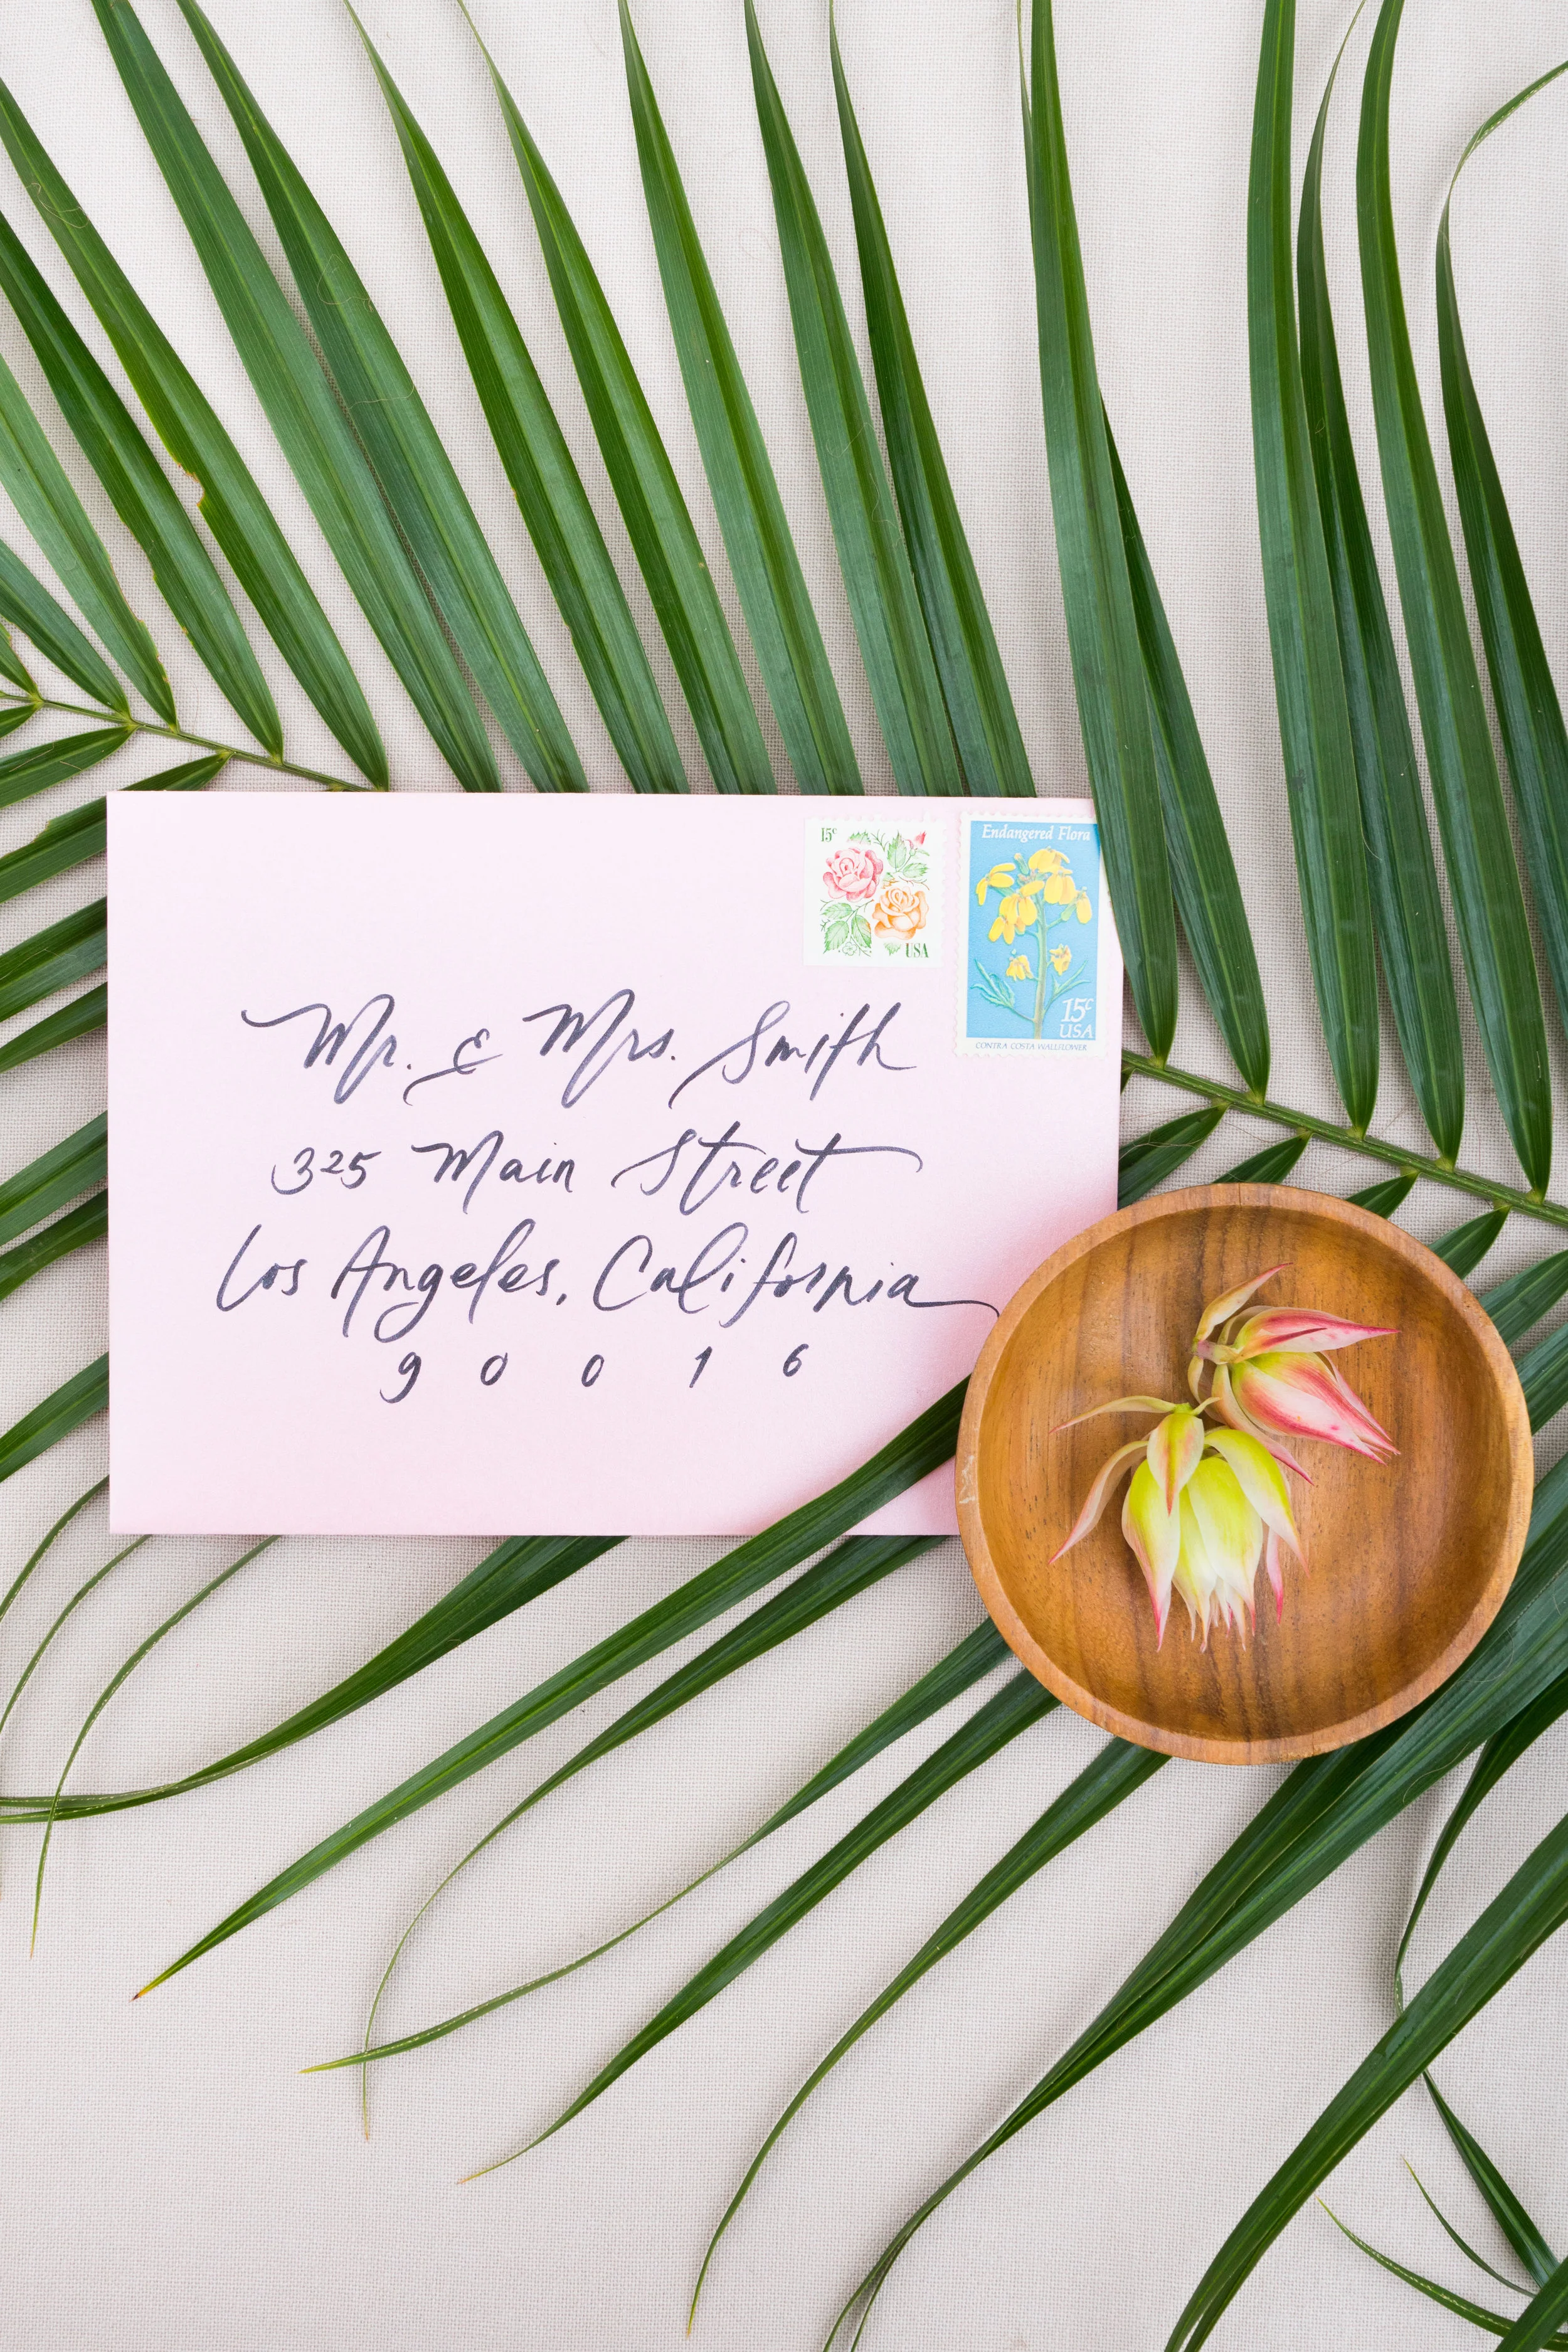 15c
USA
Endangered Flora
15c
USA
CONTRA COSTA WALLFLOWER
Mr. & Mrs. Smith
325 Main Street
Los Angeles, California
90016